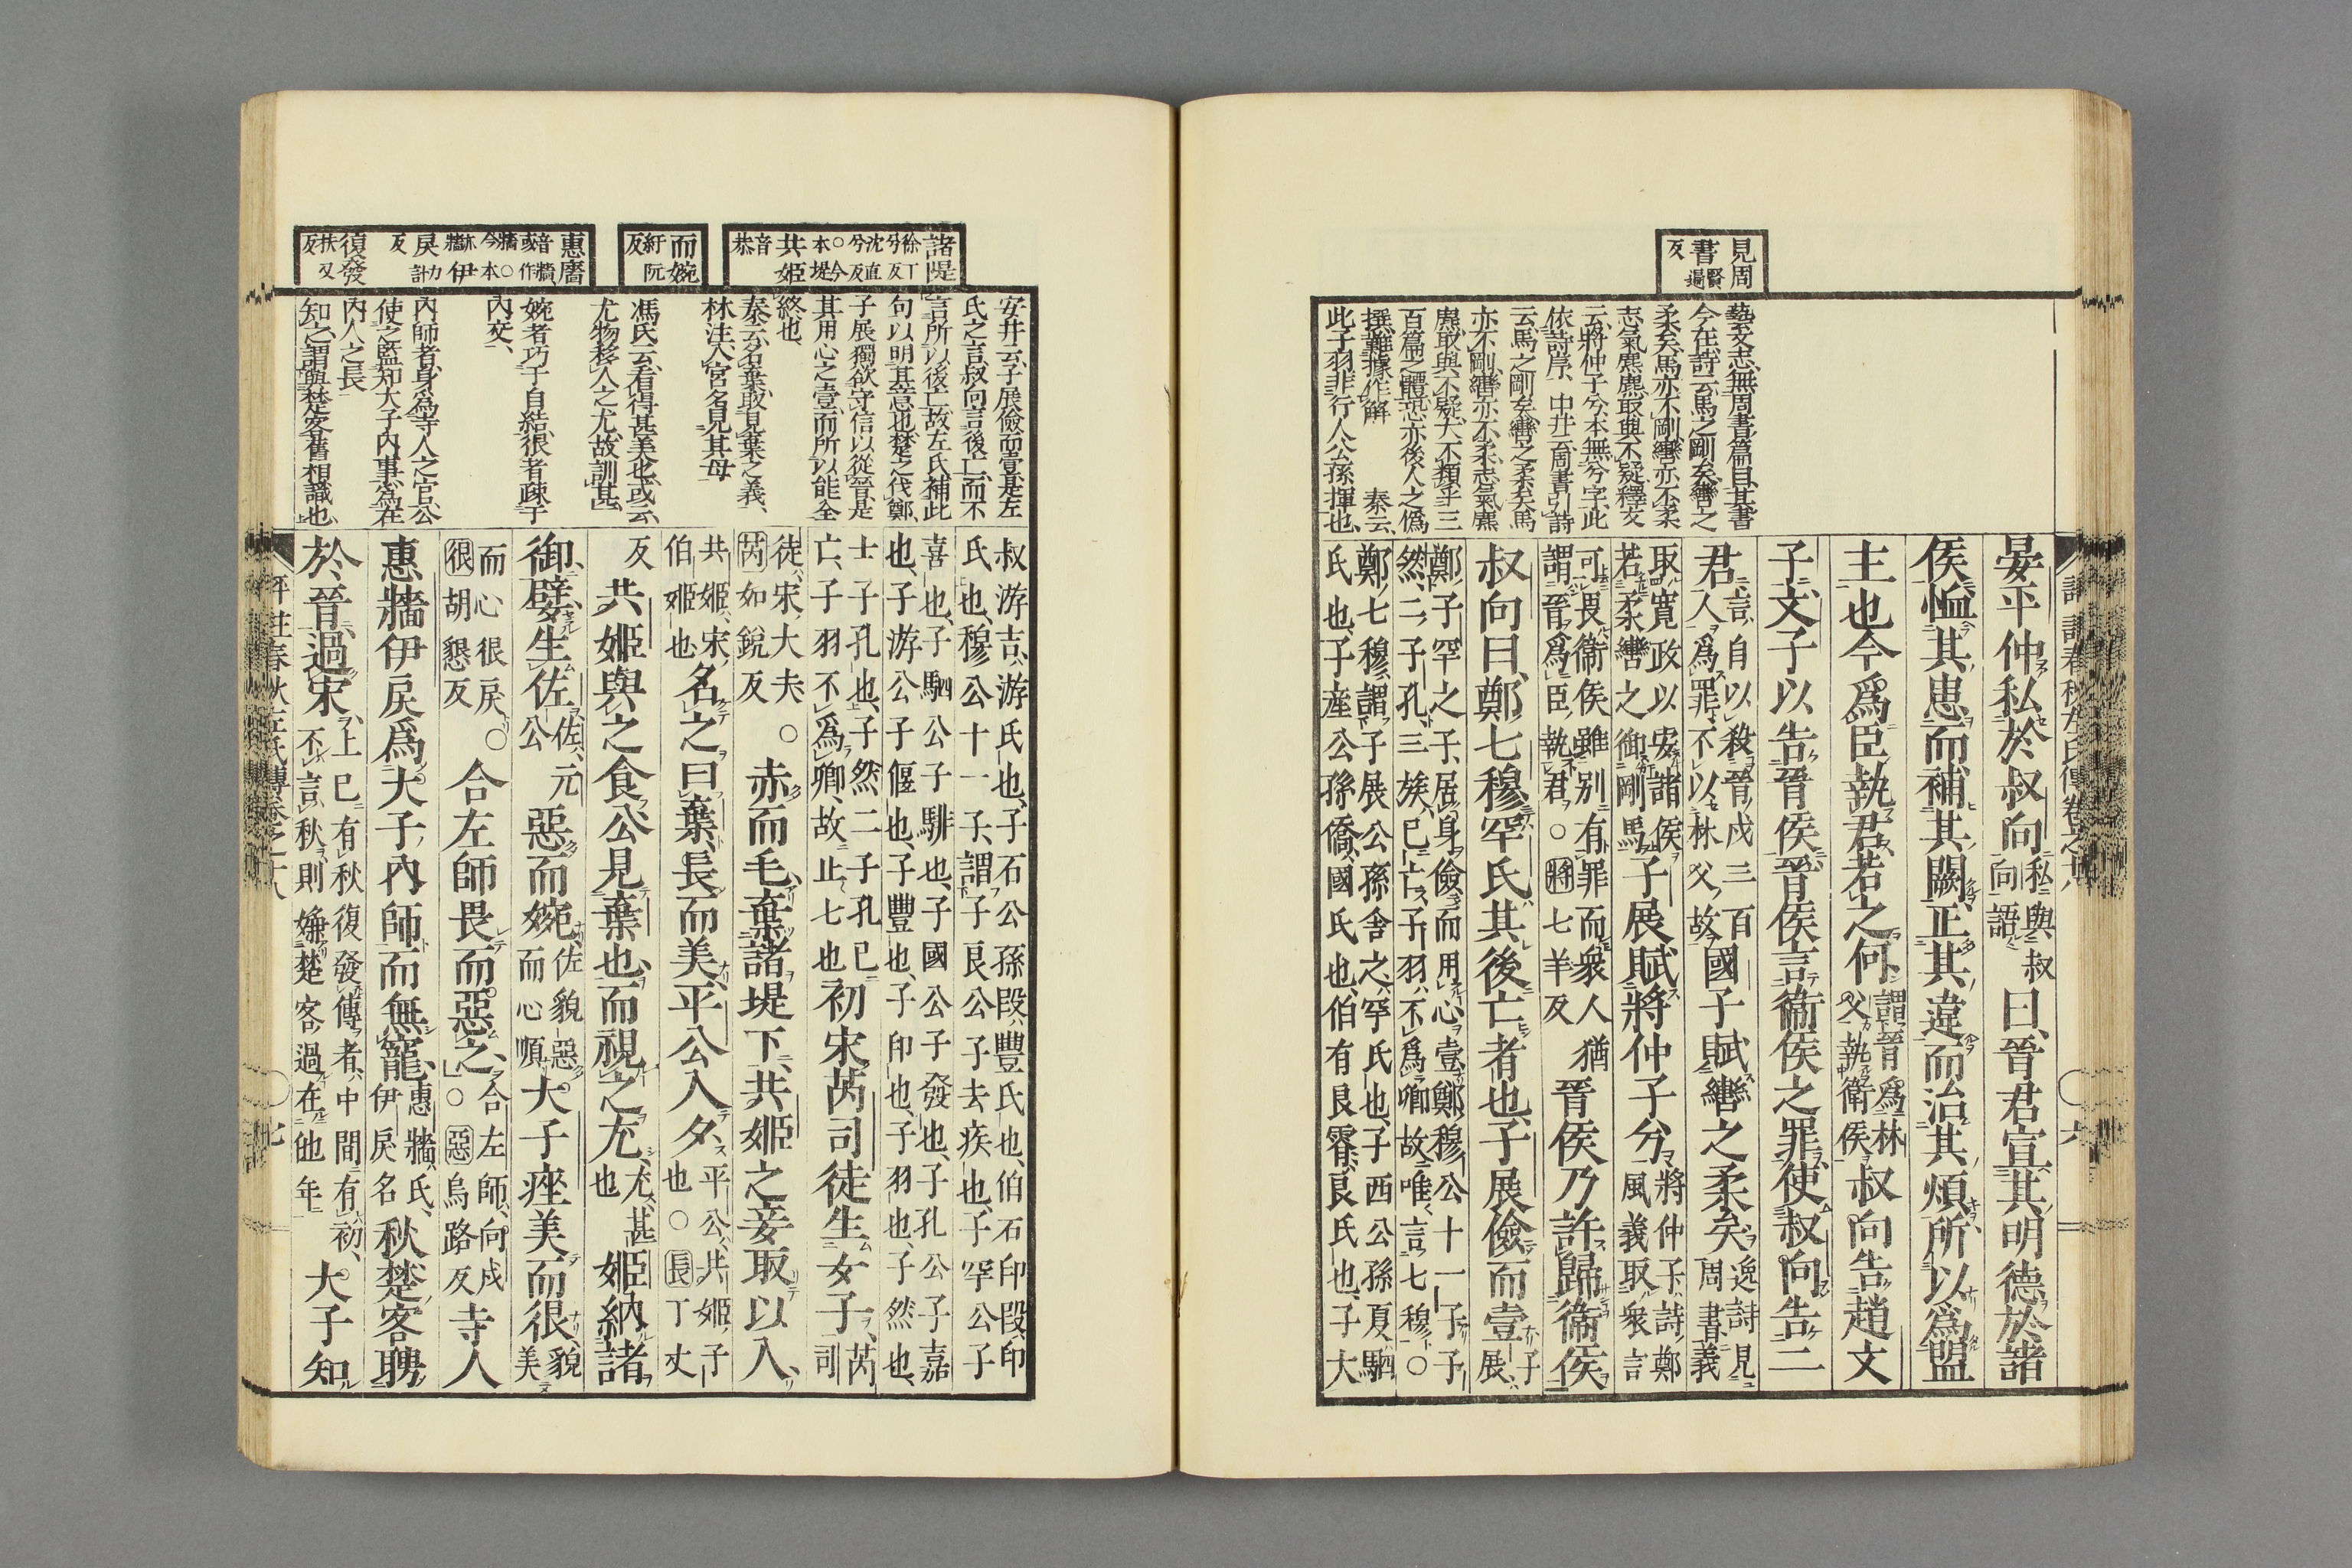 見周
書賢
反遍
藝文志、無周書篇目、其書
今在、詩云、馬之剛矣、轡之
柔矣、馬亦不剛、轡亦不柔、
志氣麃麃、取與不疑、釋文
云、將仲子兮、本無兮字、此
依詩序、中井云、周書引詩
云、馬之剛矣、轡之柔矣、馬
亦不剛、轡亦不柔、志氣麃
麃、取與不疑、大不類乎三
百篇之體、恐亦後人之僞
撰、難據作解
秦云、
此子羽非行人公孫揮也、
晏平仲私於叔向
私與叔
向語
曰、晉君宣其明德於諸
侯、恤其患而補其闕、正其違而治其煩、所以爲盟
主也、今爲臣執君、若之何、
謂晉爲林
父執衛侯
叔向告趙文
子、文子以告晉侯、晉侯言衞侯之罪、使叔向告二
君、
言、自以殺晉戍三百
人爲罪、不以林父故
國子賦轡之柔矣、
逸詩、見
周書、義
取寬政以安諸侯、
若柔轡之御剛馬
子展賦將仲子兮、
將仲子、詩鄭
風、義取衆言
可畏、衞侯雖別有罪、而衆人猶
謂晉爲臣執君、○將七羊反
晉侯乃許歸衞侯、
叔向曰、鄭七穆、罕氏其後亡者也、子展儉而壹、
子
展、
鄭子罕之子、居身儉而用心壹、鄭穆公十一子、子
然、二子孔、三族已亡、子羽不爲卿、故唯言七穆、○
鄭七穆、謂子展公孫舍之、罕氏也、子西公孫夏、駟
氏也、子産公孫僑、國氏也、伯有良霄、良氏也、子大
評註春秋左氏傳卷之十八
六
諸堤
徐丁
兮反
沈直
兮反
○今
本堤
共姬
音
恭
而婉
紆阮
反
惠廧
音牆
或作
牆○
今本
亦
牆伊
戾力
計
反
復發
扶又
反
安井云、子展儉而壹、是左
氏之言、叔向言後亡、而不
言所以後亡、故左氏補此
句以明其意也、楚之伐鄭、
子展獨欲守信以從晉、是
其用心之壹、而所以能全
終也、
秦云、名棄、取見棄之義、
林注、入宮名見其母
馮氏云、看得甚美也、或云、
尤物移人之尤、故訓甚、
婉者巧于自結、很者疎于
內交、
內師者、身爲寺人之官、公
使之監知大子內事、爲在
內人之長
知之、謂與楚客舊相識也、
叔游吉、游氏也、子石公孫段、豐氏也、伯石印段、印
氏也、穆公十一子、謂子良公子去疾也、子罕公子
喜也、子駟公子騑也、子國公子發也、子孔公子嘉
也、子游公子偃也、子豐也、子印也、子羽也、子然也、
士子孔也、子然二子孔已
亡、子羽不爲卿、故止七也
初宋芮司徒生女子、
芮
司
徒、宋大夫、○
芮如銳反
赤而毛、棄諸堤下、共姬之妾取以入、
共姬、宋
伯姬也
名之曰棄、長而美、平公入夕、
平公、共姬子
也○長丁丈
反
共姬與之食、公見棄也、而視之、尤、
尤、甚
也
姬納諸
御、嬖、生佐、
佐、元
公
惡而婉、
佐貌惡
而心順、
大子痤美而很、
貌
美
而心很戾、○
很胡懇反
合左師畏而惡之、
合左師、向戌
○惡烏路反
寺人
惠牆伊戾爲大子內師而無寵、
惠牆、氏、
伊戾名
秋、楚客聘
於晉、過宋、
上已有秋、復發傳者、中間有初、
不言秋、則嫌楚客過在他年
大子知
評註春秋左氏傳卷之十八
七